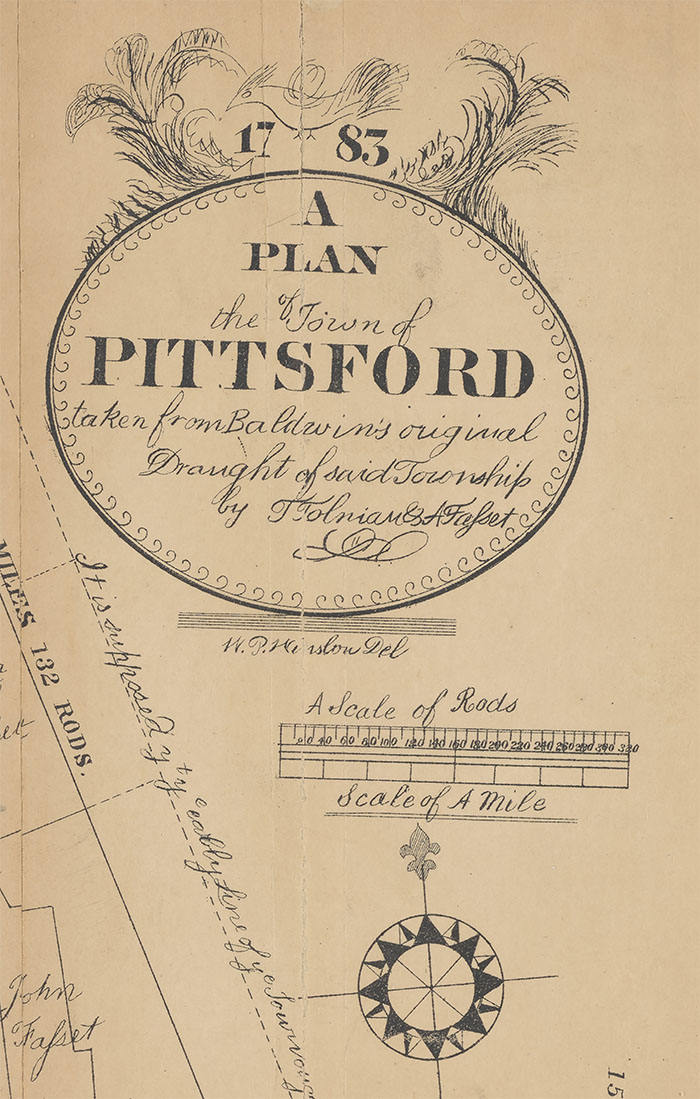 17 83
A
PLAN
of
the Town of
PITTSFORD
taken from Baldwin's original
Draught of said Township
by T Tolniam & A Faſset
W. P. Winslow Del
MILES 132 RODS.
It is supposed yt ye eastly line of ye Town
A Scale of Rods
20 40 60 80 100 120 140 160 180 200 220 240 260 280 300 320
Scale of A Mile
John
Faſset
15